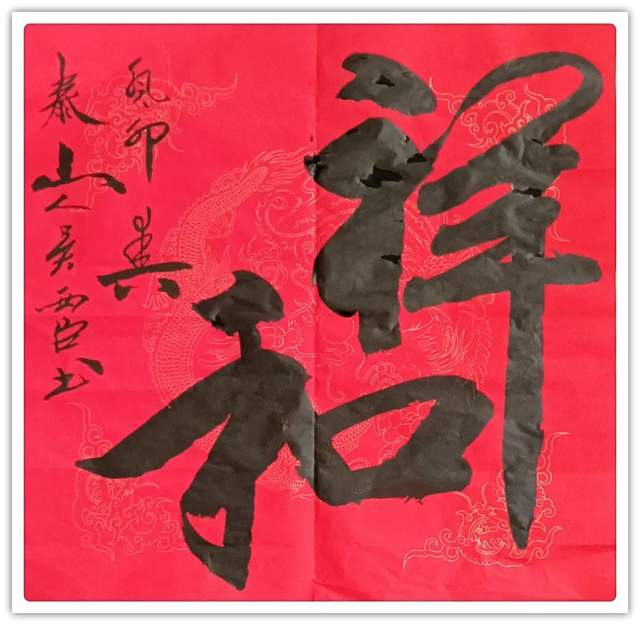 祥和
癸卯春
泰山人吴西臣书